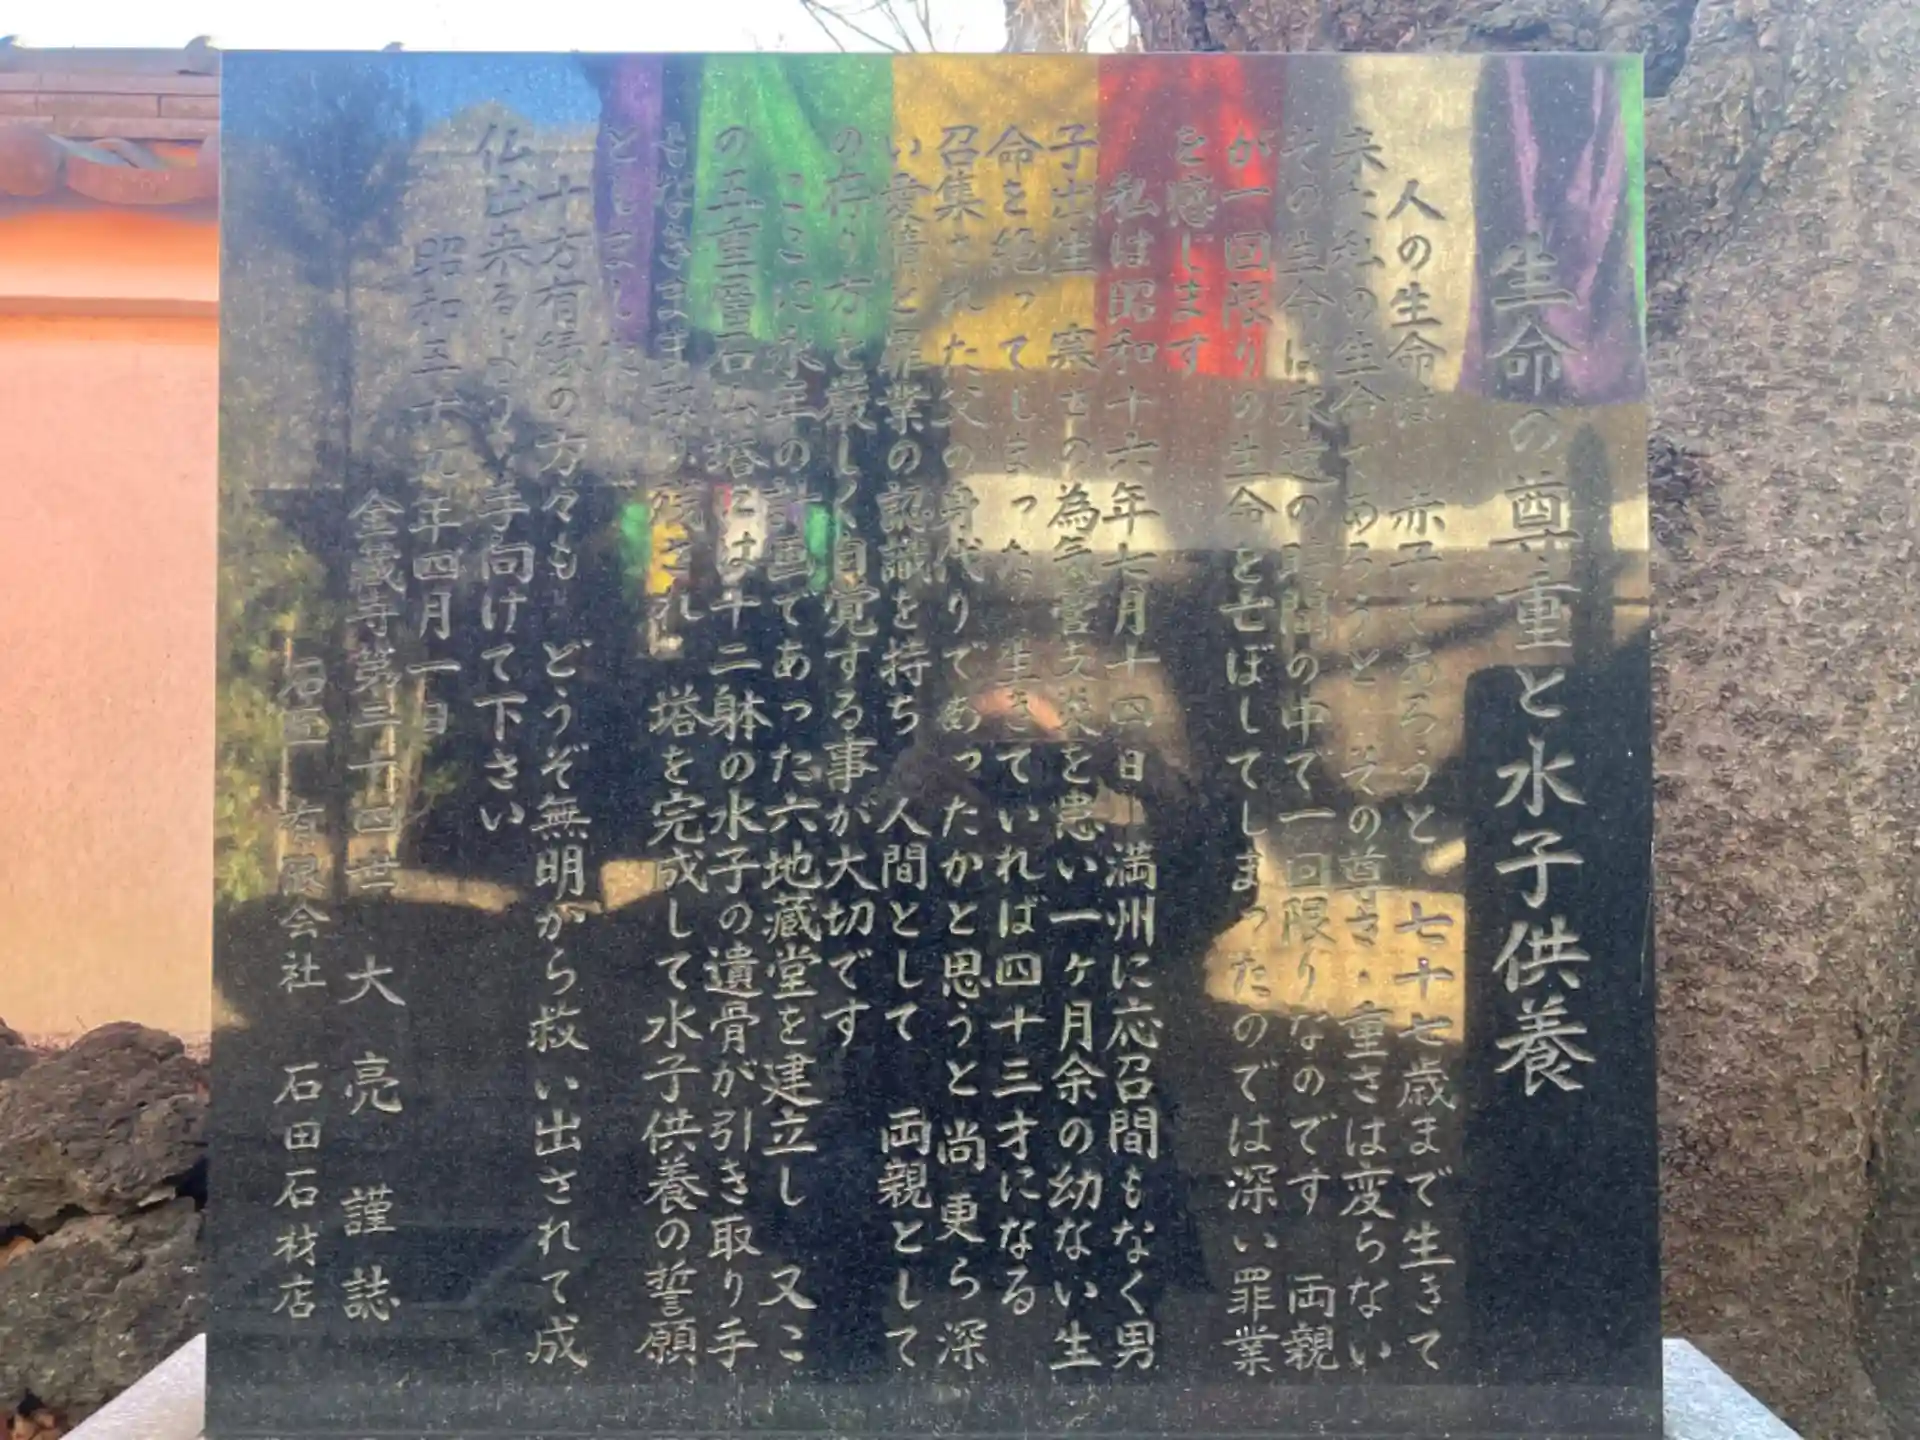 生命の尊重と水子供養
人の生命は 赤子であろうと、七十七歳まで生きて
来た私の生命であろうと その尊さ・重さは変らない
その生命は永遠の時間の中で一回限りなのです 両親
が一回限りの生命を亡ぼしてしまったのでは深い罪業
を感じます
私は昭和十六年七月十四日 満州に応召間もなく男
子出生 寒さの為気管支炎を患い一ヶ月余の幼ない生
命を絶ってしまった 生きていれば四十三才になる
召集された父の身代りであったかと思うと尚更ら深
い愛情と罪業の認識を持ち 人間として 両親として
の存り方を厳しく自覚する事が大切です
ここに永年の計画であった六地蔵堂を建立し 又こ
の五重層石仏塔には十二躰の水子の遺骨が引き取り手
もなきまま取り残され 塔を完成して水子供養の誓願
としました
十方有縁の方々も どうぞ無明から救い出されて成
仏出来るよう 手向けて下さい
昭和五十九年四月一日
金蔵寺第三十四世 大亮 謹誌
石匠 有限会社 石田石材店